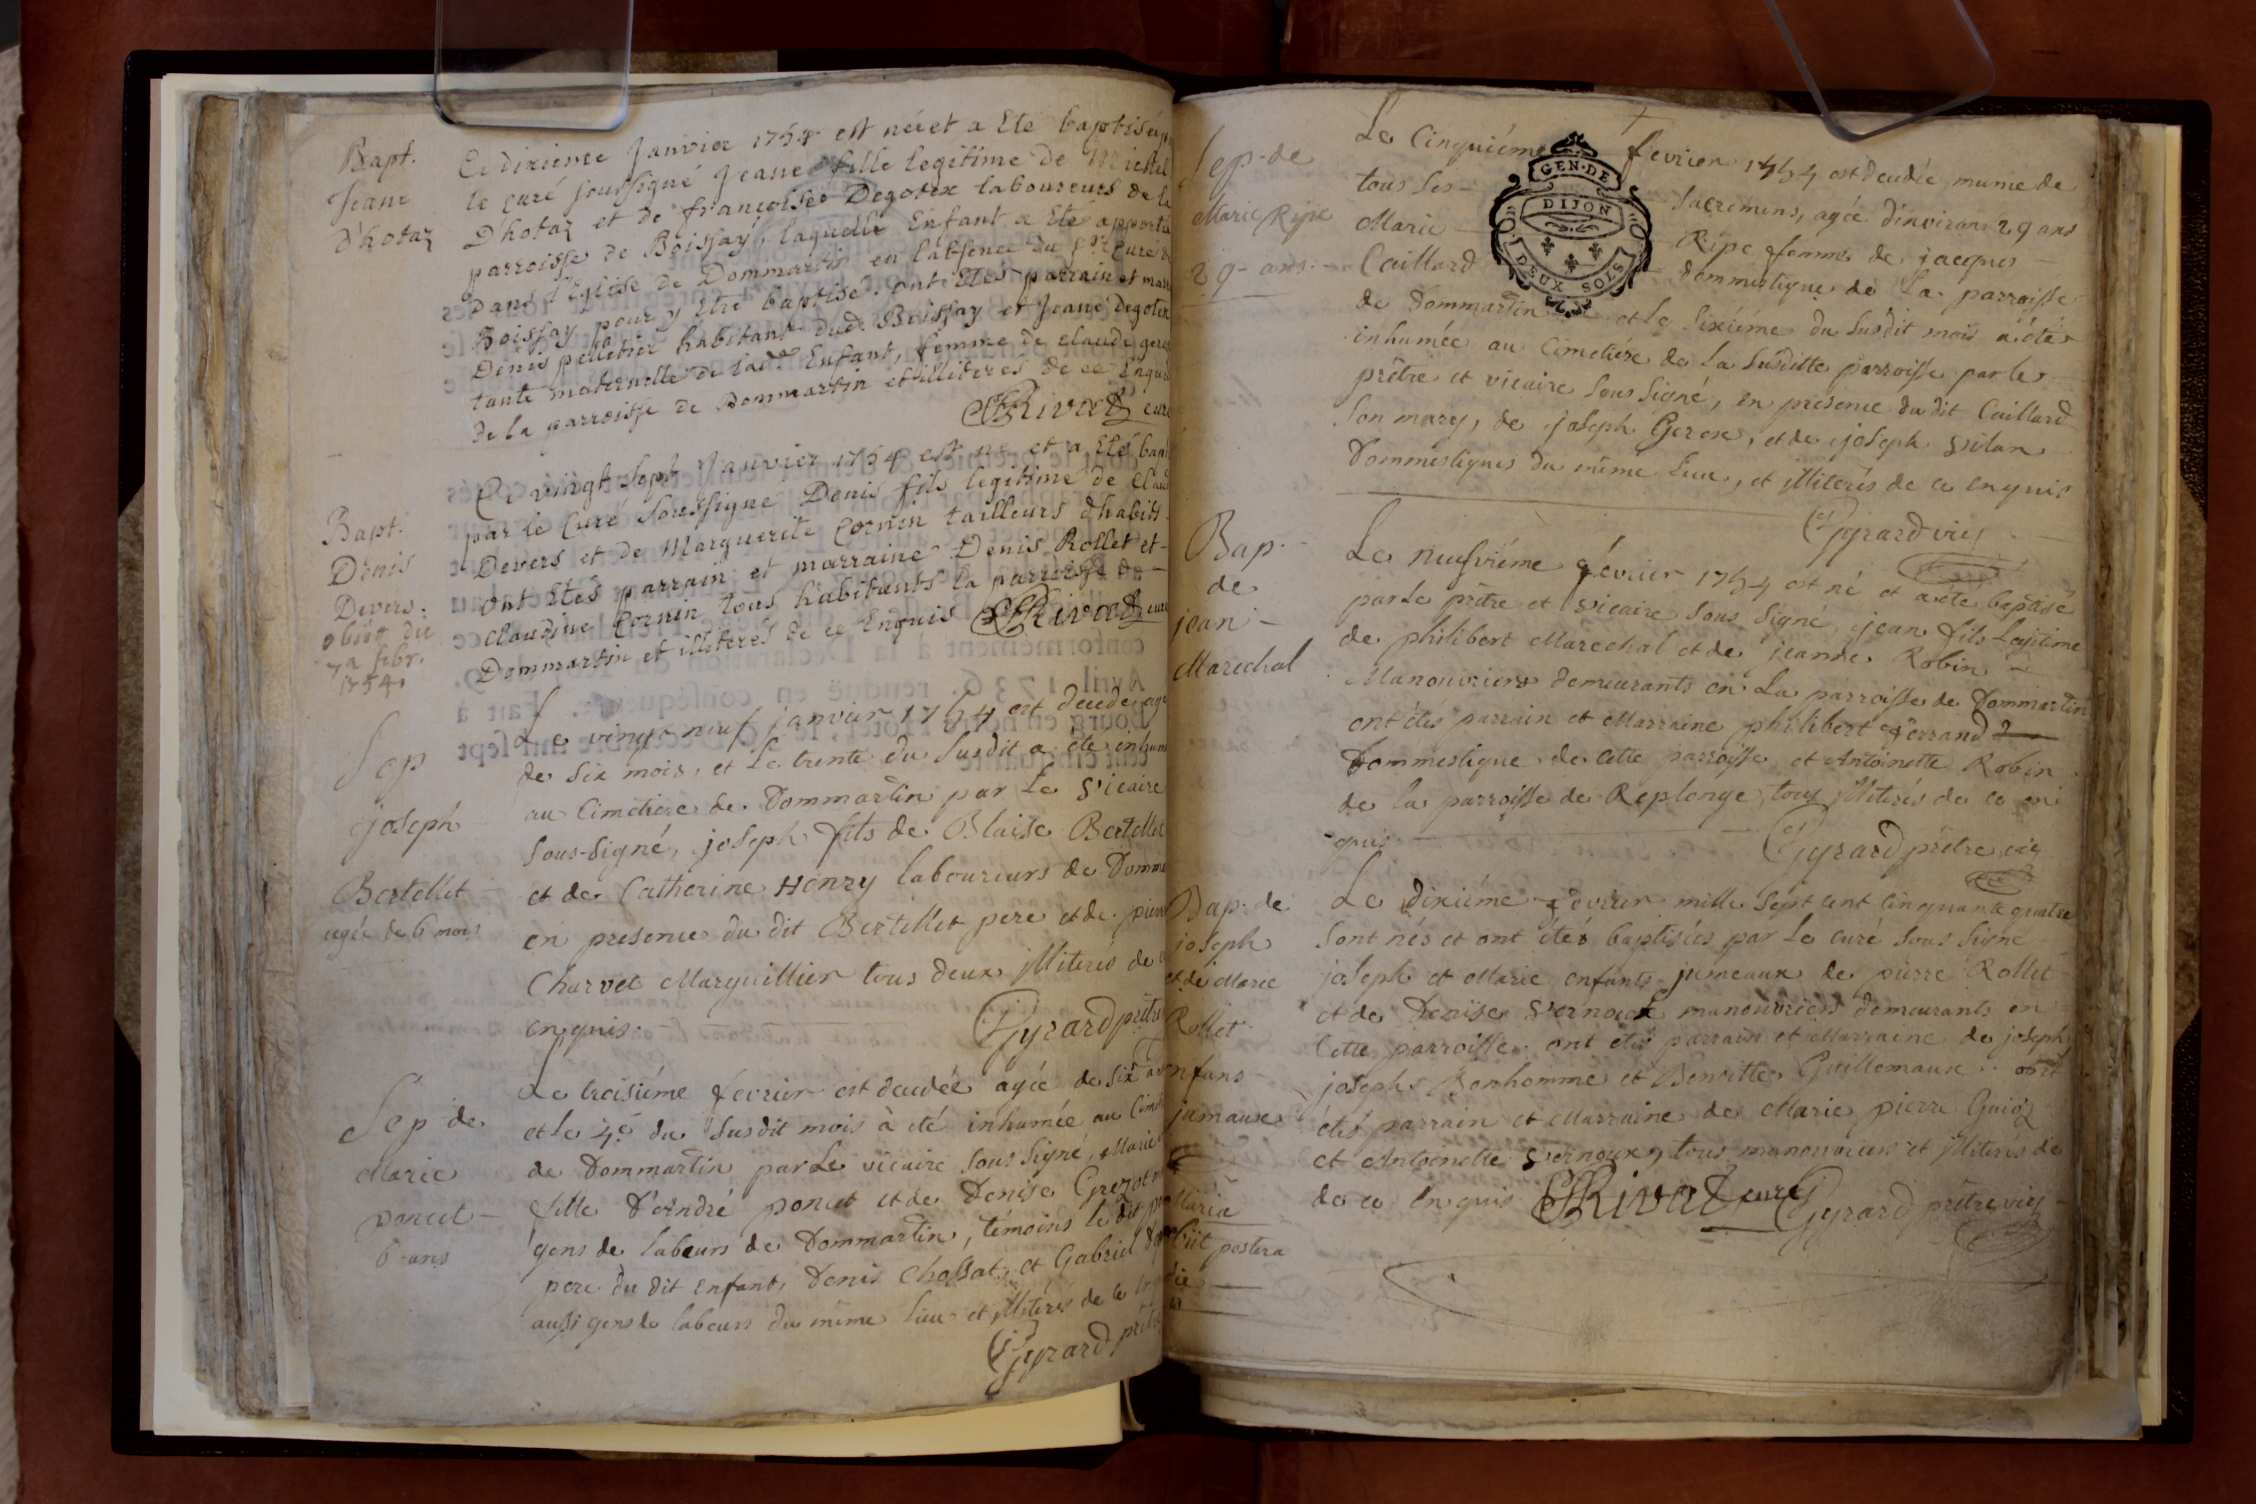 Bapt.
Jeane
d'hotaz
Ce dixieme Janvier 1754 est née et a Ete baptisée
le curé soussigné Jeane fille legitime de Michel
Dhotaz et de françoise Degotex laboureurs de la
parroisse de Boissay, laquelle Enfant a Eté apporté
dans l'Eglise de Dommartin en l'absence du Sr Curé
Boissay pour y Etre baptisé. ont Etes parrain et
Denis pelletier habitant dud. Boissay et Jeane Degotex
tante maternelle de lad. Enfant, femme de claude
de la parroisse de Dommartin et illiteres de ce
Rivat curé
Bapt.
Denis
Devers.
obiit die
7a febr.
1754.
Ce vingt Sept Janvier 1754 est né et a Eté
par le Curé Soussigne Denis fils legitime de
Devers et de Marguerite Cornin tailleurs dhabits
ont Etes parrain et marraine Denis Rollet et
claudine Cornin tous habitants la parroisse de
Dommartin et illiteres de ce Enquis Rivat curé
Sep
joseph
Bertellet
agée de 6 mois
Le vingt neuf janvier 1754 est decede
de six mois, et Le trente du Susdit a été
au Cimetiere de Dommartin par Le Vicaire
sous-signé, joseph fils de Blaise Bertellet
et de Catherine Henry laboureurs de
en presence du dit Bertellet pere et de
Charvet Marguillier tous deux illiteres de
enquis. Gyrard
Sep de
Marie
poncet
6 ans
Le troisième fevrier est decedée agée de six
et le 4e du Susdit mois à été inhumée au
de Dommartin par Le vicaire sous signé, Marie
fille d'André poncet et de Denise
gens de labeurs de Dommartin, témoins le dit
pere du dit enfant, Denis Chossat, et Gabriel
aussi gens de labeurs du même lieu et illiterés de ce
Gyrard
Sep. de
Marie Ripe
29 ans
GEN. DE
DIJON
DEUX SOLS
Le Cinquiéme fevrier 1754 est decedée munie de
tous les Sacremens, agée d'environ 29 ans
Marie Ripe femme de jacques
Caillard dommestique de La parroisse
de Dommartin et le sixiéme du susdit mois a été
inhumée au Cimetiére de la susditte parroisse par le
prêtre et vicaire sous signé, en presence du dit Caillard
son mary, de joseph et de joseph
Dommestiques du même lieu, et illiterés de ce enquis
Gyrard vic
Bap.
de
jean
Marechal
Le neufviéme fevrier 1754 est né et a été baptisé
par Le prêtre et vicaire sous signé, jean fils Legitime
de philibert Marechal et de jeanne Robin
Manouvriers demeurants en La parroisse de Dommartin
ont étés parrain et Marraine philibert ferrand
Dommestique de cette parroisse et Antoinette Robin
de la parroisse de Replonge, tous illiterés de ce en
quis
Gyrard prêtre vic
Bap. de
joseph
et de Marie
Rollet
enfans
jumaux
Maria
obiit postera
die
Le dixiéme fevrier mille sept cent cinquante quatre
sont nés et ont étés baptisés par Le curé sous signe
joseph et Marie enfants jumeaux de pierre Rollet
et de Denise Vernoux manouvriers demeurants en
Cette parroisse. ont étés parrain et Marraine de joseph
joseph Bonhomme et Benoitte Guillemaux. ont
étés parrain et Marraine de Marie pierre
et Antoinette Vernoux, tous manouvriers et illiterés de
de ce enquis Rivat curé Gyrard prêtre vic